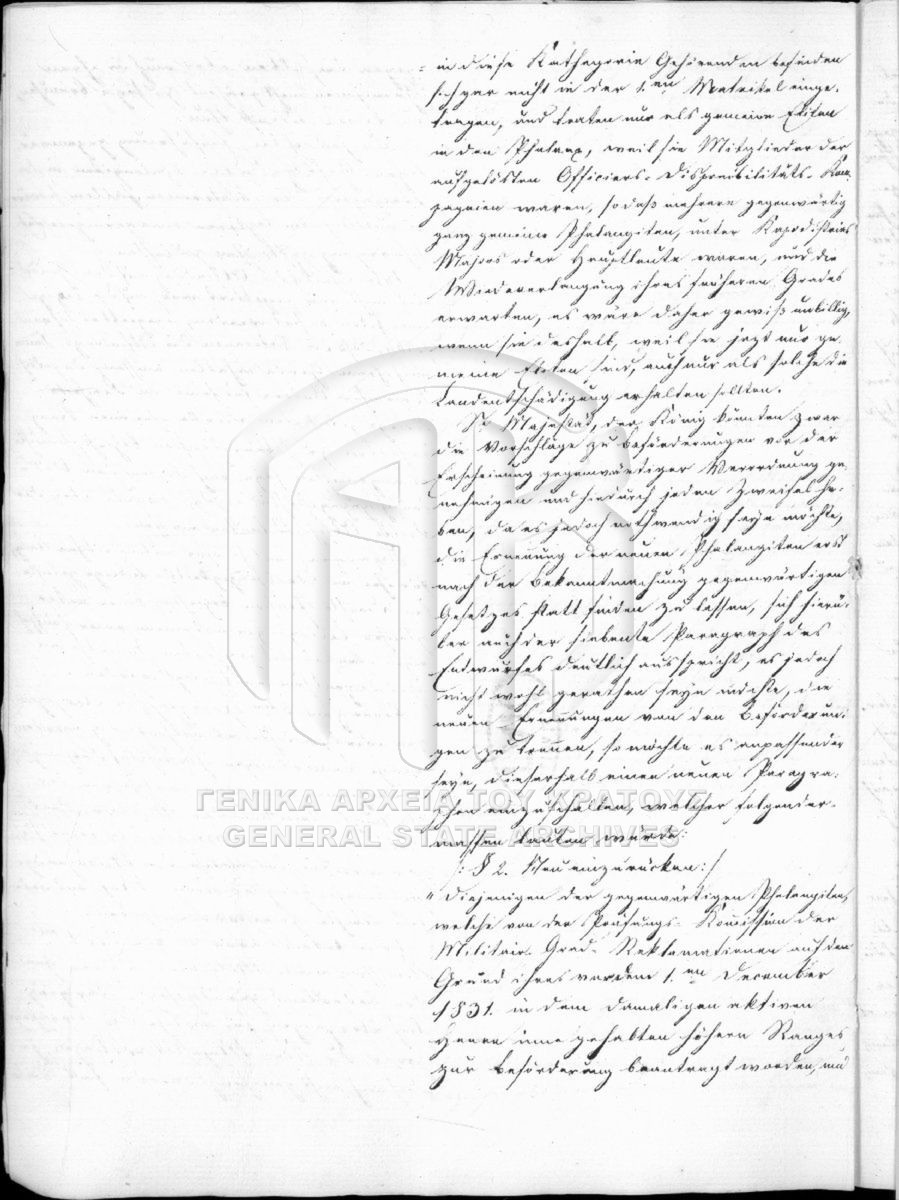 in diese Kathegorie Gehörenden befinden
sich gar nicht in der 1.en Matrikel einge-
tragen, und traten nur als gemeine
in den Phalanx, weil sie Mitglieder der
aufgelösten Officiers- Disponibilitäts- Kom-
pagnien waren, so daß mehrere gegenwärtig
ganz gemeine Phalangiten, unter Kapodistrias
Majors oder Hauptleute waren, und die
Wiedererlangung ihres früheren Grades
erwarten, es wäre daher gewiß unbillig,
wenn sie deshalb, weil sie jezt nur ge-
meine sind, auch nur als solche die
Landentschädigung erhalten sollten.
Se Majestät, der König könnten zwar
die Vorschläge zu Beförderungen vor der
Erscheinung gegenwärtiger Verordnung ge-
nehmigen und hiedurch jeden Zweifel he-
ben, da es jedoch nothwendig seyn möchte,
die Ernennung der neuen Phalangiten erst
nach der Bekanntmachung gegenwärtigen
Gesetzes statt finden zu lassen, sich hierü-
ber auch der siebente Paragraph des
Entwurfes deutlich ausspricht, es jedoch
nicht wohl gerathen seyn möchte, die
neuen Ernennungen von den Beförderun-
gen zu trennen, so möchte es anpassender
seyn, dieserhalb einen neuen Paragra-
phen einzuschalten, welcher folgender-
massen lauten würde:
/: § 2. Neu einzurücken :/
" Diejenigen der gegenwärtigen Phalangiten,
welche von der Prüfungs- Kommission der
Militair- Grad- Reklamationen auf den
Grund ihres vor dem 1.en December
1831. in dem damaligen aktiven
Heere inne gehabten höhern Ranges
zur Beförderung beantragt worden, und
ΓΕΝΙΚΑ ΑΡΧΕΙΑ ΤΟΥ ΚΡΑΤΟΥΣ
GENERAL STATE ARCHIVES